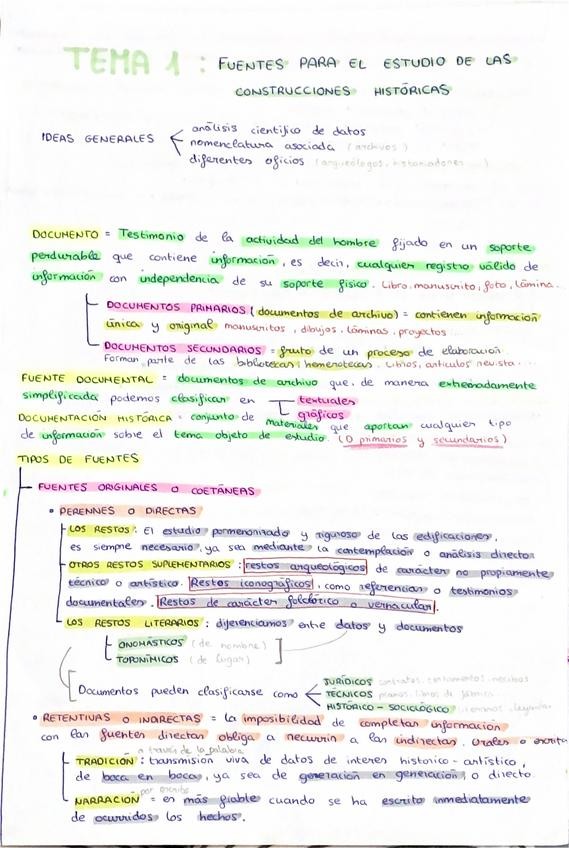 TEMA 1 : FUENTES PARA EL ESTUDIO DE LAS
CONSTRUCCIONES HISTÓRICAS
IDEAS GENERALES
análisis científico de datos
nomenclatura asociada (archivos)
diferentes oficios (arqueólogos, historiadores ...)
DOCUMENTO = Testimonio de la actividad del hombre fijado en un soporte
perdurable que contiene información, es decir, cualquier registro válido de
información con independencia de su soporte físico. Libro, manuscrito, foto, lámina...
DOCUMENTOS PRIMARIOS (documentos de archivo) = contienen información
única y original manuscritos, dibujos, láminas, proyectos...
DOCUMENTOS SECUNDARIOS = fruto de un proceso de elaboración
Forman parte de las bibliotecas, hemerotecas. Libros, artículos revista...
FUENTE DOCUMENTAL = documentos de archivo que, de manera extremadamente
simplificada podemos clasificar en
textuales
gráficos
DOCUMENTACIÓN HISTÓRICA = conjunto de materiales que aportan cualquier tipo
de información sobre el tema objeto de estudio. (D primarios y secundarios)
TIPOS DE FUENTES
FUENTES ORIGINALES O COETÁNEAS
• PERENNES O DIRECTAS
LOS RESTOS: El estudio pormenorizado y riguroso de las edificaciones,
es siempre necesario, ya sea mediante la contemplación o análisis directo.
OTROS RESTOS SUPLEMENTARIOS: restos arqueológicos de carácter no propiamente
técnico o artístico. Restos iconográficos, como referencias o testimonios
documentales. Restos de carácter folclórico o vernacular.
LOS RESTOS LITERARIOS: diferenciamos entre datos y documentos
ONOMÁSTICOS (de nombre)
TOPONÍMICOS (de lugar)
Documentos pueden clasificarse como
JURÍDICOS contratos,
TÉCNICOS planos, libros de fábrica...
HISTÓRICO-SOCIOLÓGICO
• RETENTIVAS O INDIRECTAS = la imposibilidad de completar información
con las fuentes directas obliga a recurrir a las indirectas, orales o
a través de la palabra
TRADICIÓN: transmisión viva de datos de interés histórico-artístico,
de boca en boca, ya sea de generación en generación, o directo.
por escrito
NARRACIÓN = es más fiable cuando se ha escrito inmediatamente
de ocurridos los hechos.